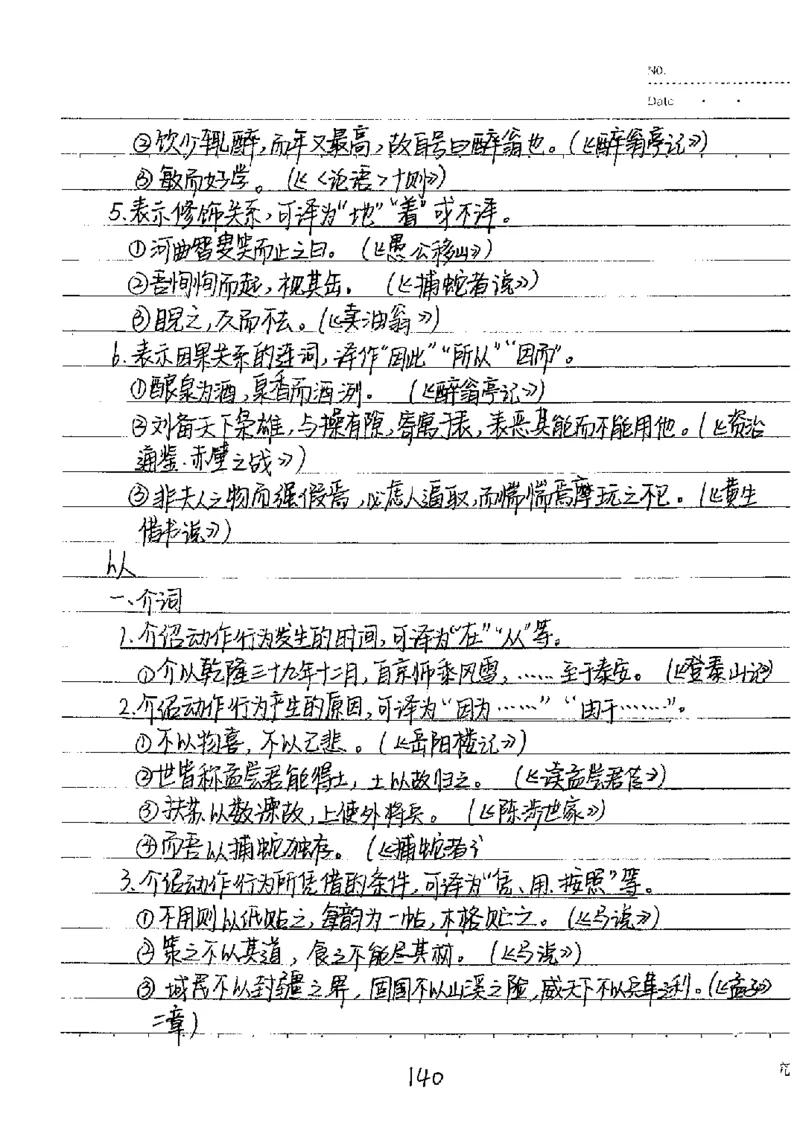 NO.
Date
②饮少辄醉,而年又最高,故自号曰醉翁也。(《醉翁亭记》)
③敏而好学。(《〈论语〉十则》)
5.表示修饰关系,可译为“地”“着”或不译。
①河曲智叟笑而止之曰。(《愚公移山》)
②吾恂恂而起,视其缶。(《捕蛇者说》)
③睨之,久而不去。(《卖油翁》)
6.表示因果关系的连词,译作“因此”“所以”“因而”。
①酿泉为酒,泉香而酒洌。(《醉翁亭记》)
②刘备天下枭雄,与操有隙,寄寓于表,表恶其能而不能用也。(《资治
通鉴·赤壁之战》)
③非夫人之物而强假焉,必虑人逼取,而惴惴焉摩玩之不已。(《黄生
借书说》)
以
一、介词
1.介绍动作行为发生的时间,可译为“在”“从”等。
①介以乾隆三十九年十二月,自京师乘风雪,……至于泰安。(《登泰山记》
2.介绍动作行为产生的原因,可译为“因为……”“由于……”。
①不以物喜,不以己悲。(《岳阳楼记》)
②世皆称孟尝君能得士,士以故归之。(《读孟尝君传》)
③扶苏以数谏故,上使外将兵。(《陈涉世家》)
④而吾以捕蛇独存。(《捕蛇者
3.介绍动作行为所凭借的条件,可译为“凭、用、按照”等。
①不用则以纸贴之,每韵为一帖,木格贮之。(《马说》)
②策之不以其道,食之不能尽其材。(《马说》)
③域民不以封疆之界,固国不以山溪之险,威天下不以兵革之利。(《孟子》
二章)
140